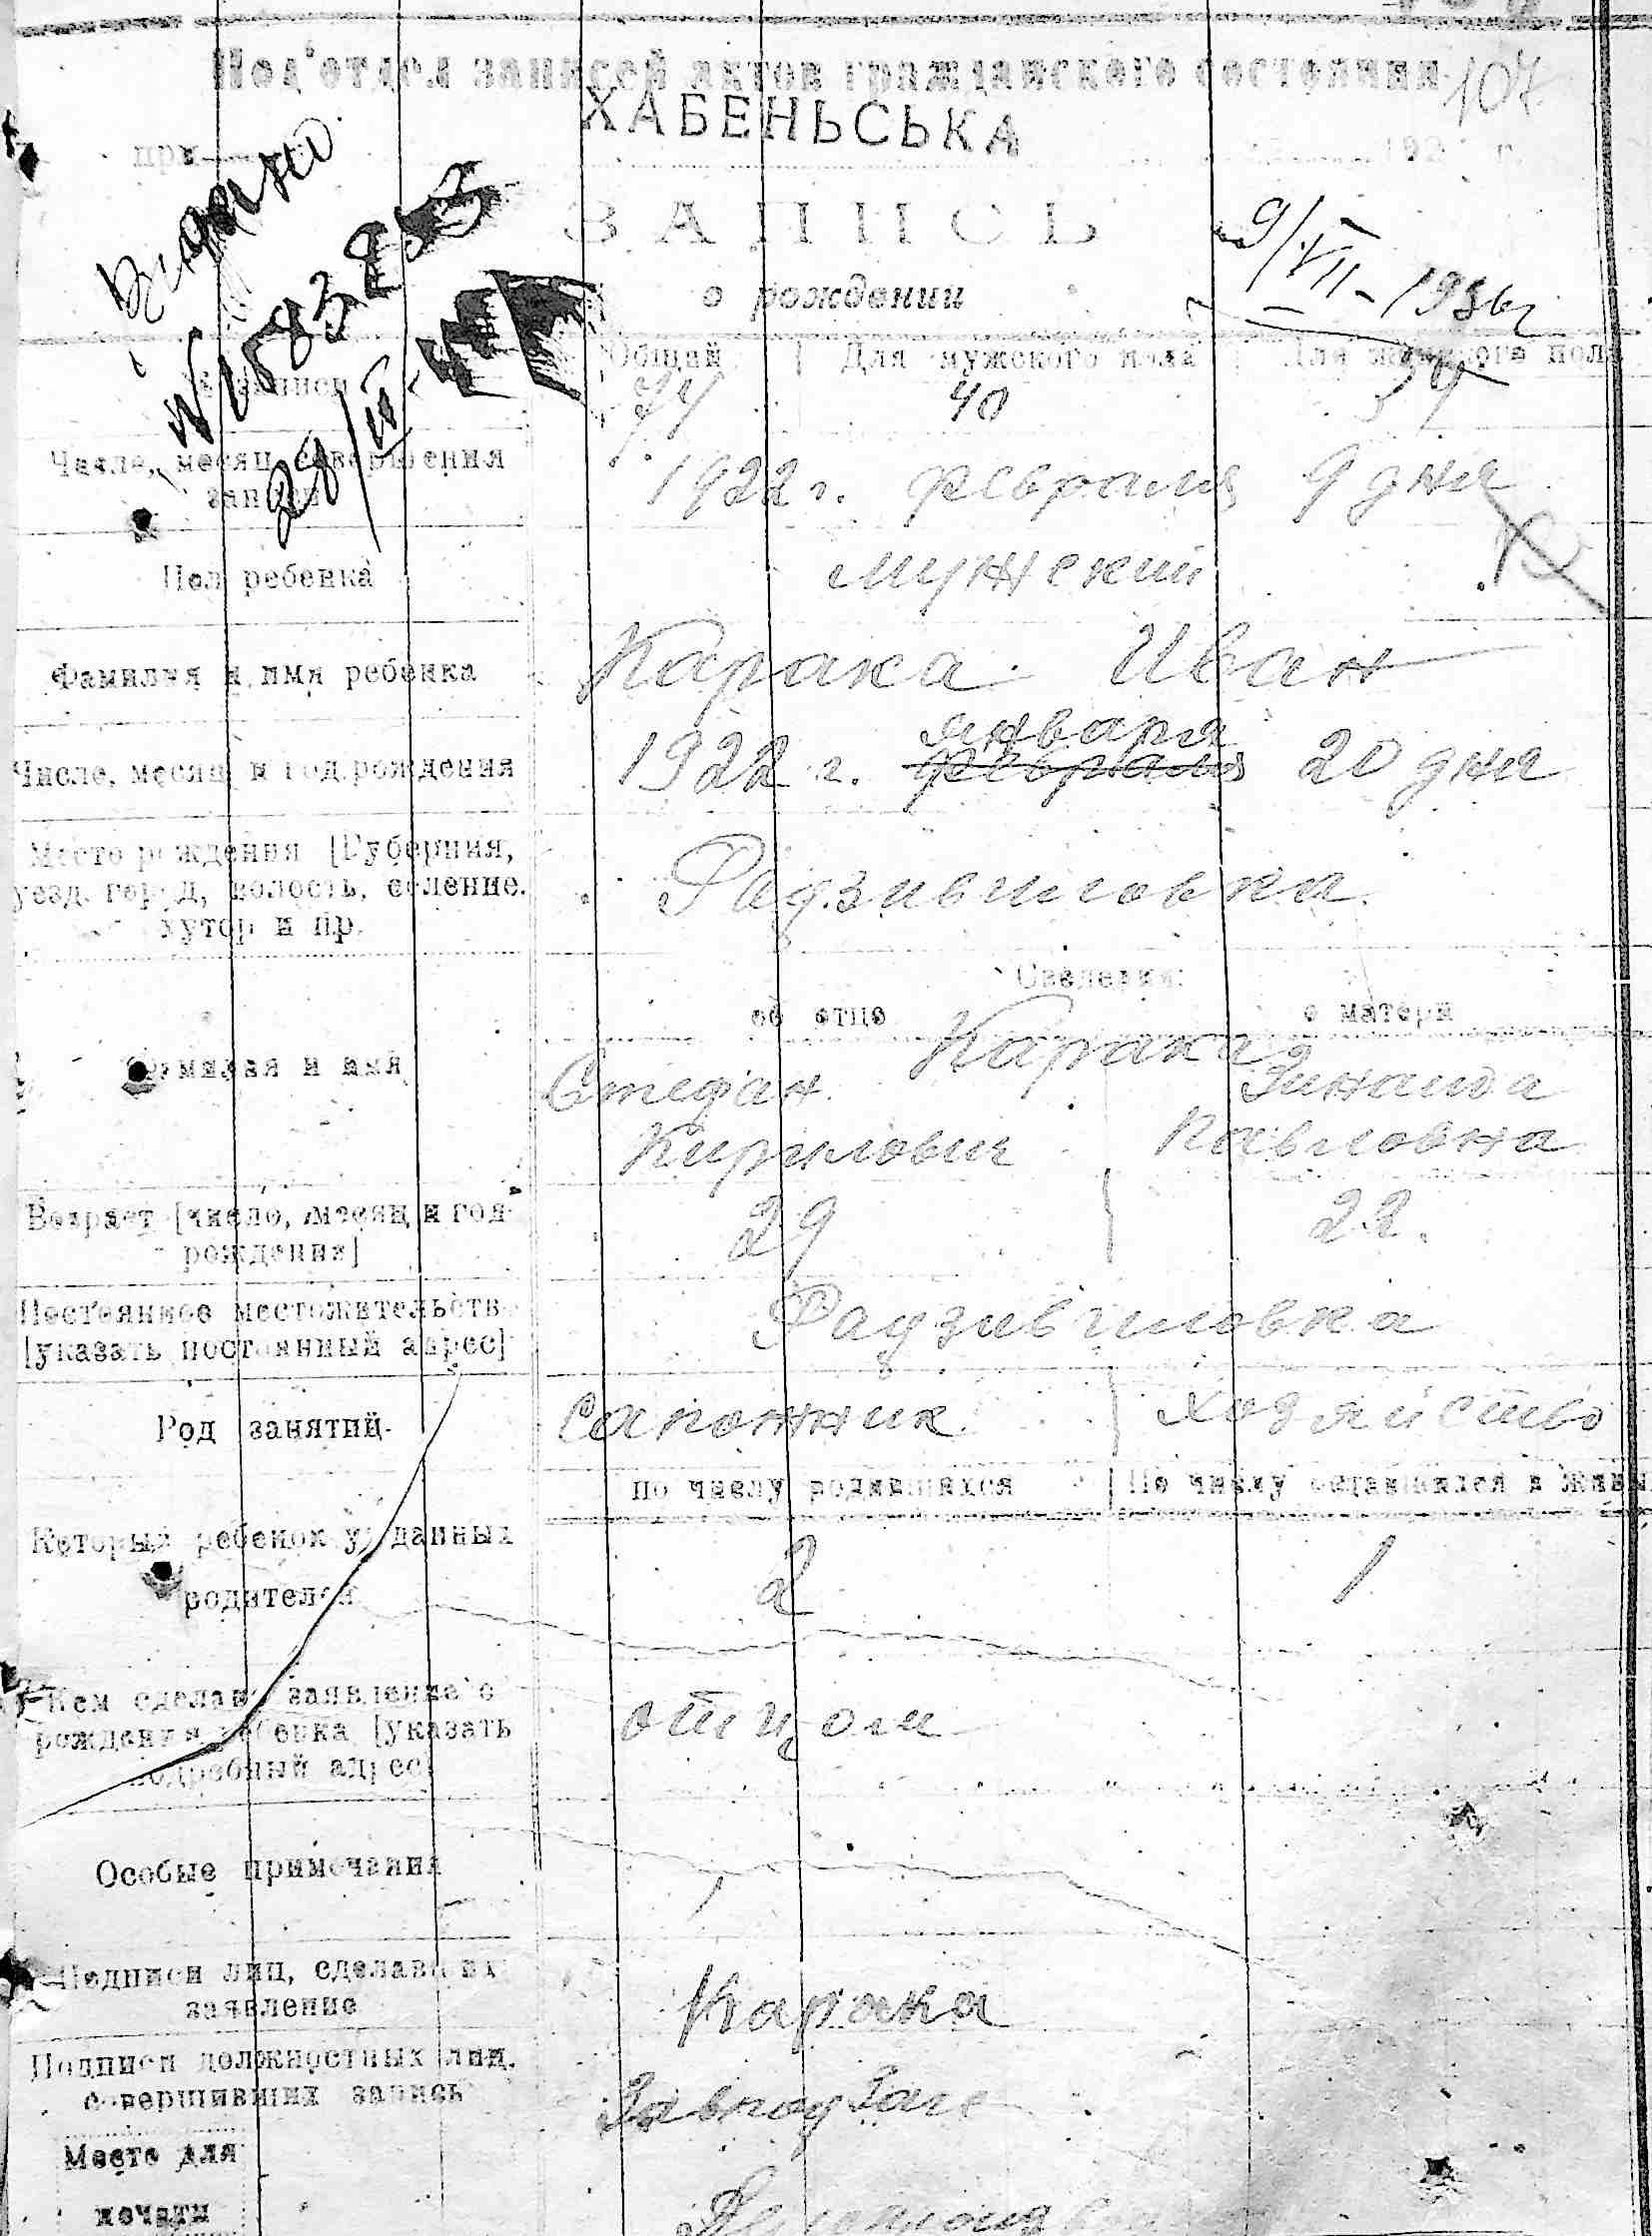 Под'отдел записей актов гражданского состояния 107
ХАБЕНЬСЬКА
при 192 г.
Видано
ЗАПИСЬ
о рождении
9/VII-1936г
Общий Для мужского пола Для женского пола
№ записи 74 40 34
Число, месяц совершения
записи
1922 г. февраля 9 дня
Пол ребенка мужский
Фамилия и имя ребенка Карака Иван
января
Число, месяц и год рождения 1922 г. февраля 20 дня
Место рождения [Губерния,
уезд, город, волость, селение,
хутор и пр.
Радзивиловка
Сведения:
об отце о матери
Карака
Фамилия и имя Стефан Зинаида
Кирилович Павловна
Возраст [число, месяц и год
рождения]
29 22.
Постоянное местожительств
[указать постоянный адрес]
Радзивиловка
Род занятий Сапожник хозяйство
по числу родившихся По числу оставшихся в живы
Который ребенок у данных
родителей
2 1
Кем сделано заявление о
рождении ребенка [указать
подробный адрес]
отцом
Особые примечания
Подписи лиц, сделавших
заявление
Карака
Подписи должностных лиц,
совершивших запись
Завпод Загс
Место для
печати